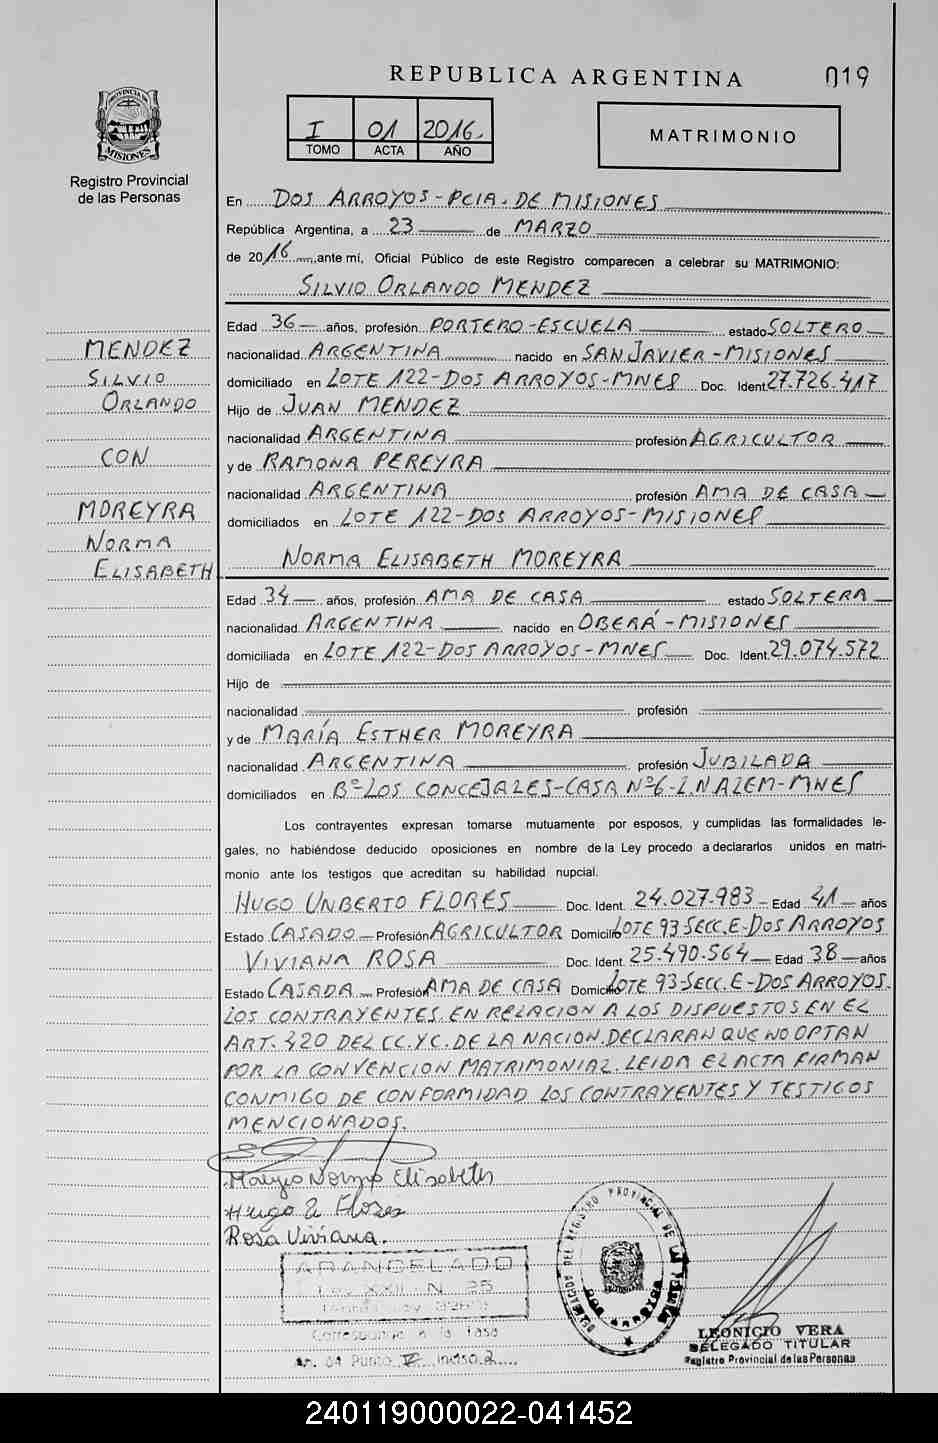 REPUBLICA ARGENTINA 019
PROVINCIA DE
MISIONES
Registro Provincial
de las Personas
I 01 2016.
TOMO ACTA AÑO
MATRIMONIO
En DOS ARROYOS - PCIA. DE MISIONES
República Argentina, a 23 de MARZO
de 2016 ante mí, Oficial Público de este Registro comparecen a celebrar su MATRIMONIO:
SILVIO ORLANDO MENDEZ
MENDEZ
SILVIO
ORLANDO
CON
MOREYRA
NORMA
ELISABETH
Edad 36 años, profesión PORTERO-ESCUELA estado SOLTERO
nacionalidad ARGENTINA nacido en SAN JAVIER - MISIONES
domiciliado en LOTE 122-DOS ARROYOS-MNES Doc. Ident. 27.726.417
Hijo de JUAN MENDEZ
nacionalidad ARGENTINA profesión AGRICULTOR
y de RAMONA PEREYRA
nacionalidad ARGENTINA profesión AMA DE CASA
domiciliados en LOTE 122-DOS ARROYOS-MISIONES
NORMA ELISABETH MOREYRA
Edad 34 años, profesión AMA DE CASA estado SOLTERA
nacionalidad ARGENTINA nacido en OBERÁ - MISIONES
domiciliada en LOTE 122-DOS ARROYOS-MNES Doc. Ident. 29.074.572
Hijo de
nacionalidad profesión
y de MARÍA ESTHER MOREYRA
nacionalidad ARGENTINA profesión JUBILADA
domiciliados en Bº LOS CONCEJALES-CASA Nº6-L.N ALEM-MNES
Los contrayentes expresan tomarse mutuamente por esposos, y cumplidas las formalidades le-
gales, no habiéndose deducido oposiciones en nombre de la Ley procedo a declararlos unidos en matri-
monio ante los testigos que acreditan su habilidad nupcial.
HUGO UNBERTO FLORES Doc. Ident. 24.027.983 Edad 41 años
Estado CASADO Profesión AGRICULTOR Domicilio LOTE 93-SECC.E-DOS ARROYOS
VIVIANA ROSA Doc. Ident. 25.490.564 Edad 38 años
Estado CASADA Profesión AMA DE CASA Domicilio LOTE 93-SECC.E-DOS ARROYOS.
LOS CONTRAYENTES EN RELACION A LOS DISPUESTOS EN EL
ART. 420 DEL CC. YC. DE LA NACION, DECLARAN QUE NO OPTAN
POR LA CONVENCION MATRIMONIAL. LEIDA EL ACTA FIRMAN
CONMIGO DE CONFORMIDAD LOS CONTRAYENTES Y TESTIGOS
MENCIONADOS.
Norma Elisabeth
Hugo Flores
Rosa Viviana.
ARANCELADO
Ley XXII N. 25
Corresponde a la Tasa
Punto IV inciso 2
DEL REGISTRO PROVINCIAL DE LAS
DOS ARROYOS
LEONICIO VERA
DELEGADO TITULAR
Registro Provincial de las Personas
240119000022-041452